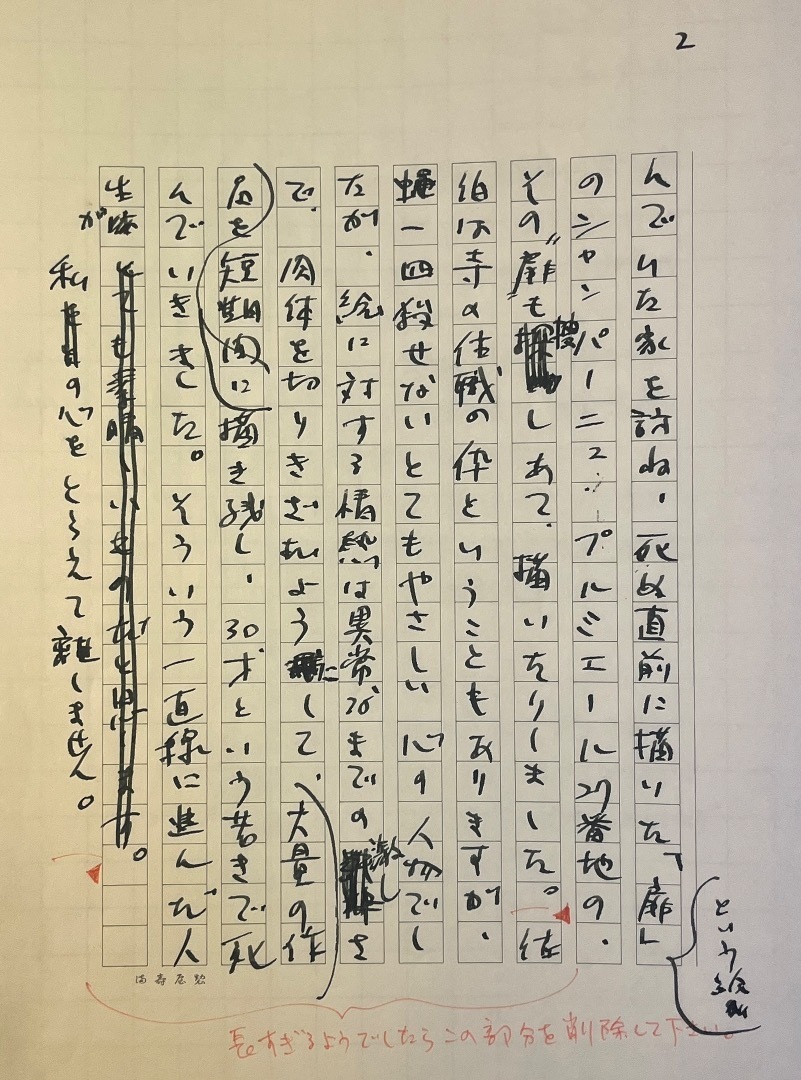 2
んでいた家を訪ね、死ぬ直前に描いた「扉」
という絵
のシャンパーニュ・プルミエール27番地の、
その"扉"も捜しあて、描いたりしました。佐
伯は寺の住職の伜ということもありますが、
蠅一匹殺せないとてもやさしい心の人物でし
たが、絵に対する情熱は異常なまでの激しさ
で、肉体を切りきざむように して、大量の作
品を短期間に描き残し、30才という若さで死
んでいきました。そういう一直線に進んだ人
生が
私の心をとらえて離しません。
満寿屋製
長すぎるようでしたらこの部分を削除して下さい。